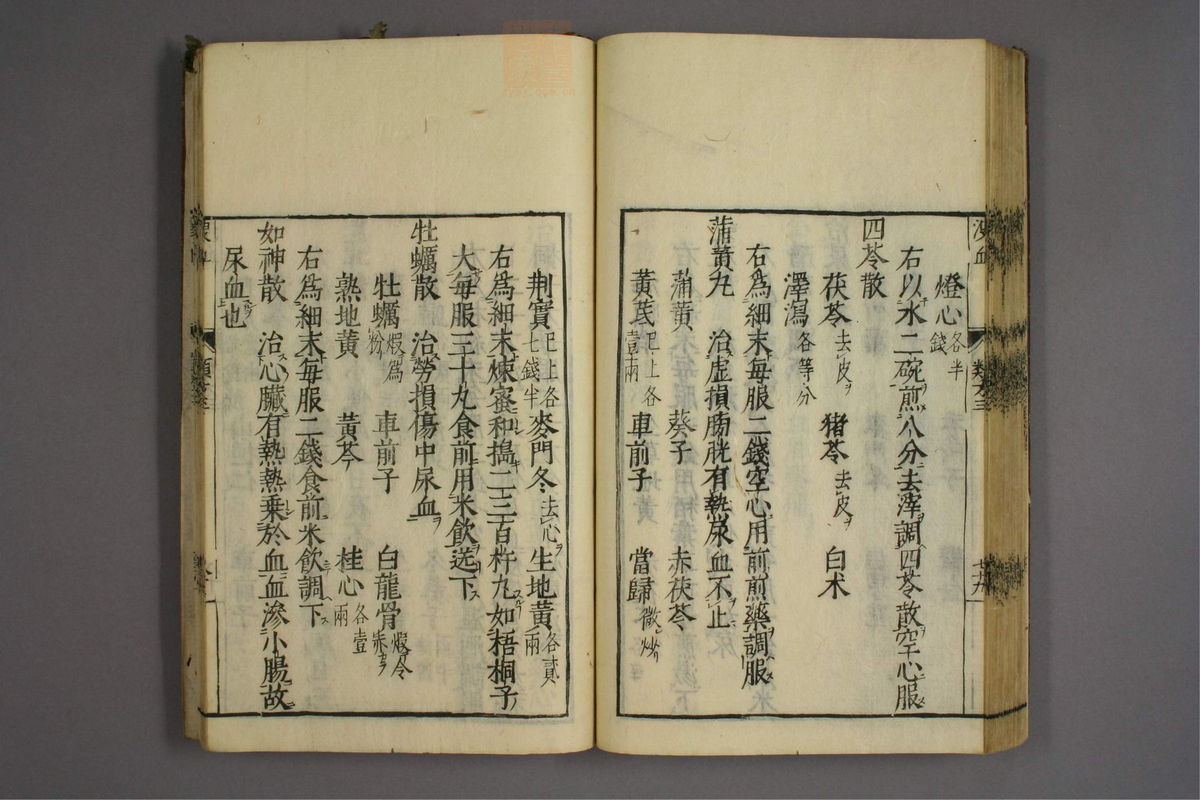 燈心各半錢
右以水二碗煎八分去滓調四苓散空心服
四苓散
茯苓去皮ヲ 猪苓去皮ヲ 白朮
澤瀉各等分
右為細末每服二錢空心用前煎藥調服
蒲黃丸 治虛損膀胱有熱尿血不止
蒲黃 葵子 赤茯苓
黃芪已上各壹兩 車前子 當歸微炒
荆實已上各七錢半 麥門冬去心ヲ 生地黃各貳兩
右為細末煉蜜和搗二三百杵丸如梧桐子
大每服三十丸食前用米飲送下
牡蠣散 治勞損傷中尿血
牡蠣煆為粉 車前子 白龍骨煆令赤
熟地黃 黃芩 桂心各壹兩
右為細末每服二錢食前米飲調下
如神散 治心臟有熱熱乗於血血滲小腸故
尿血也